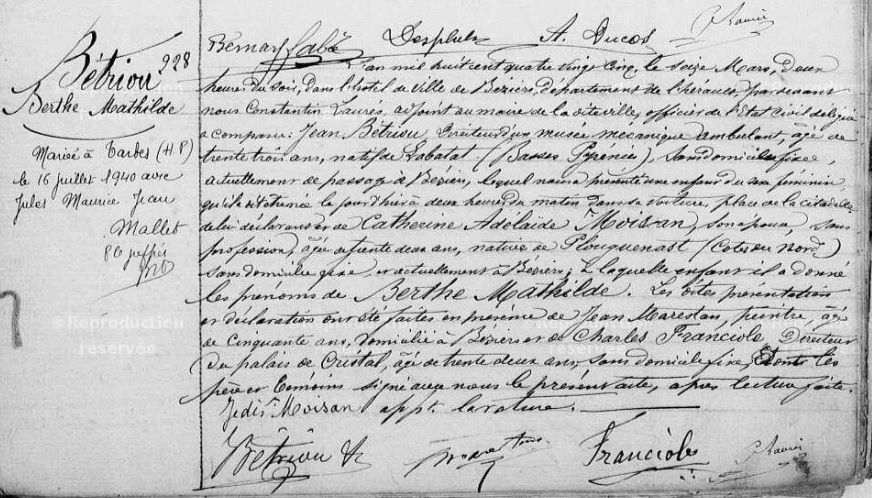 Bétriou 228
Berthe Mathilde
Mariée à Tarbes (H P)
le 16 juillet 1940 avec
Jules Maurice Jean
Mallet
Bernard Desplats A. Ducos
L'an mil huit cent quatre vingt cinq, le seize Mars, deux
heures du soir, dans l'hotel de ville de Béziers, département de l'herault, par devant
nous Constantin Laurès adjoint au maire de la dite ville, officier de l'Etat Civil délégué
a comparu: Jean Bétriou Directeur d'un musée mecanique ambulant, âgé de
trente trois ans, natif de Labatat (Basses Pyrénées), sans domicile fixe,
actuellement de passage à Béziers, lequel nous a présenté une enfant du sexe féminin,
qu'il a déclaré née le jour d'hier à deux heures du matin dans sa voiture, place de la citadelle
de lui déclarant et de Catherine Adélaïde Moisan, son épouse, sans
profession, âgée de trente deux ans, native de Plouguenast (Cotes du Nord)
sans domicile fixe, et actuellement à Béziers; à laquelle enfant il a donné
les prénoms de Berthe Mathilde. Les dites présentation
et déclaration ont été faites en présence de Jean Marestan, peintre, âgé
de Cinquante ans, domicilié à Béziers et de Charles Franciole, Directeur
du palais de Cristal, âgé de trente deux ans, sans domicile fixe, les
père et témoins signé avec nous le présent acte, après lecture faite.
Je dis Moisan appt. la rature.
Bétriou Marestan Franciole
©Reproduction ©Reproduction
réservée réservée